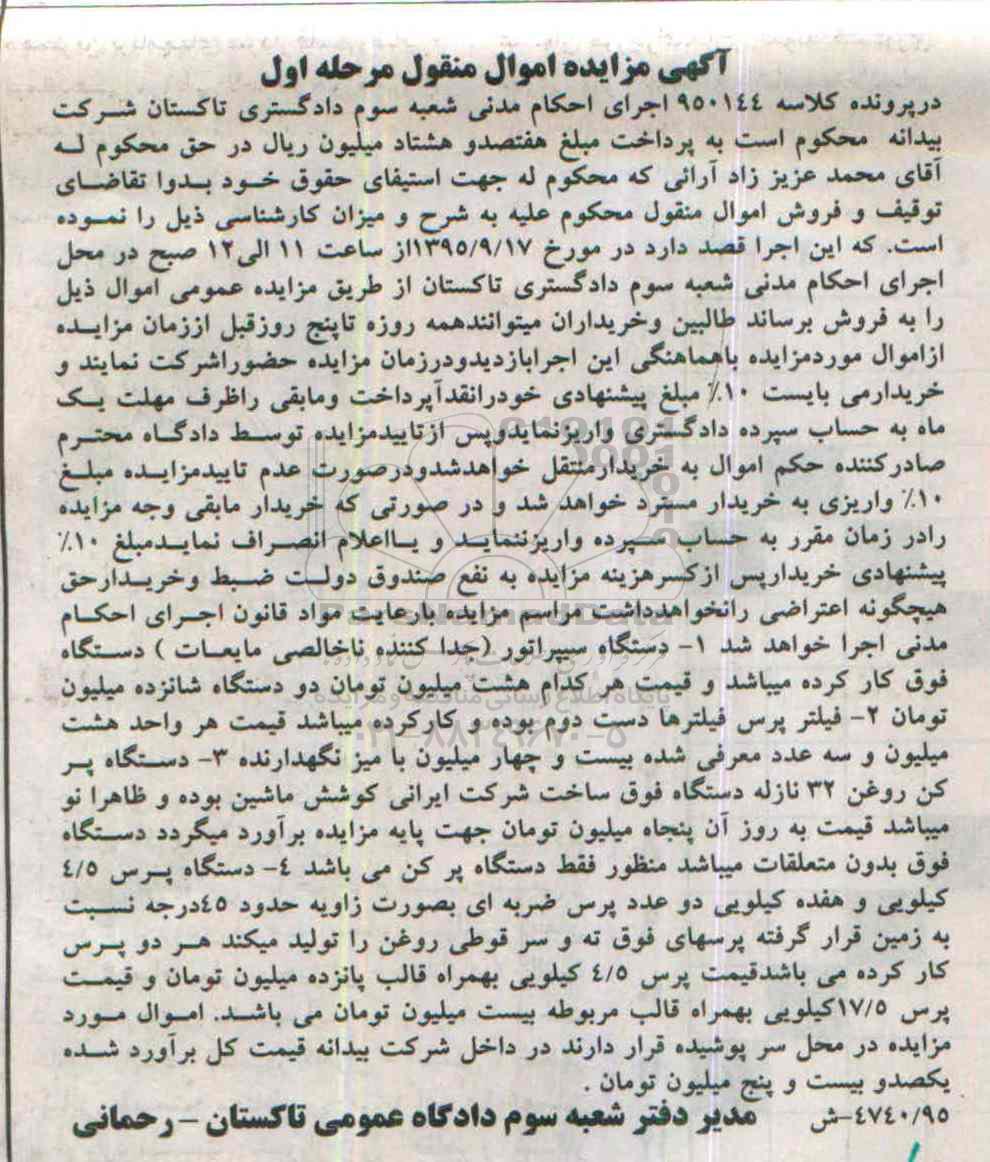 آگهی مزایده اموال منقول مرحله اول
درپرونده کلاسه ۹۵۰۱٤٤ اجرای احکام مدنی شعبه سوم دادگستری تاکستان شرکت
بیدانه محکوم است به پرداخت مبلغ هفتصدو هشتاد میلیون ریال در حق محکوم له
آقای محمد عزیز زاد آرائی که محکوم له جهت استیفای حقوق خود بدوا تقاضای
توقیف و فروش اموال منقول محکوم علیه به شرح و میزان کارشناسی ذیل را نموده
است. که این اجرا قصد دارد در مورخ ۱۳۹۵/۹/۱۷از ساعت ۱۱ الی۱۲ صبح در محل
اجرای احکام مدنی شعبه سوم دادگستری تاکستان از طریق مزایده عمومی اموال ذیل
را به فروش برساند طالبین وخریداران میتوانندهمه روزه تاپنج روزقبل اززمان مزایده
ازاموال موردمزایده باهماهنگی این اجرابازدیدودرزمان مزایده حضوراشرکت نمایند و
خریدارمی بایست ۱۰٪ مبلغ پیشنهادی خودرانقدآپرداخت ومابقی راظرف مهلت یک
ماه به حساب سپرده دادگستری واریزنمایدوپس ازتاییدمزایده توسط دادگاه محترم
صادرکننده حکم اموال به خریدارمنتقل خواهدشدودرصورت عدم تاییدمزایده مبلغ
۱۰٪ واریزی به خریدار مسترد خواهد شد و در صورتی که خریدار مابقی وجه مزایده
رادر زمان مقرر به حساب سپرده واریزننماید و یااعلام انصراف نمایدمبلغ ۱۰٪
پیشنهادی خریدارپس ازکسرهزینه مزایده به نفع صندوق دولت ضبط وخریدارحق
هیچگونه اعتراضی رانخواهدداشت مراسم مزایده بارعایت مواد قانون اجرای احکام
مدنی اجرا خواهد شد ۱- دستگاه سیپراتور (جدا کننده ناخالصی مایعات ) دستگاه
فوق کار کرده میباشد و قیمت هر کدام هشت میلیون تومان دو دستگاه شانزده میلیون
تومان ۲- فیلتر پرس فیلترها دست دوم بوده و کارکرده میباشد قیمت هر واحد هشت
میلیون و سه عدد معرفی شده بیست و چهار میلیون با میز نگهدارنده ۳- دستگاه پر
کن روغن ۳۲ نازله دستگاه فوق ساخت شرکت ایرانی کوشش ماشین بوده و ظاهرا نو
میباشد قیمت به روز آن پنجاه میلیون تومان جهت پایه مزایده برآورد میگردد دستگاه
فوق بدون متعلقات میباشد منظور فقط دستگاه پر کن می باشد ٤- دستگاه پرس ٤/۵
کیلویی و هفده کیلویی دو عدد پرس ضربه ای بصورت زاویه حدود ٤۵درجه نسبت
به زمین قرار گرفته پرسهای فوق ته و سر قوطی روغن را تولید میکند هر دو پرس
کار کرده می باشدقیمت پرس ٤/۵ کیلویی بهمراه قالب پانزده میلیون تومان و قیمت
پرس ۱۷/۵کیلویی بهمراه قالب مربوطه بیست میلیون تومان می باشد. اموال مورد
مزایده در محل سر پوشیده قرار دارند در داخل شرکت بیدانه قیمت کل برآورد شده
یکصدو بیست و پنج میلیون تومان .
٤۷٤۰/۹۵-ش مدیر دفتر شعبه سوم دادگاه عمومی تاکستان - رحمانی